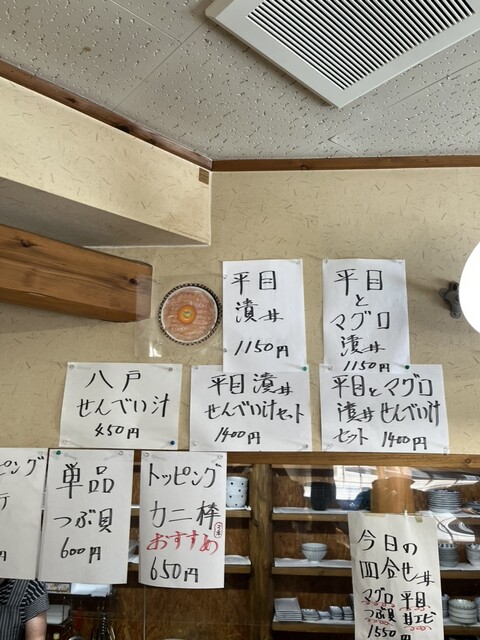 平目
漬丼
1150円
平目
と
マグロ
漬丼
1150円
八戸
せんべい汁
450円
平目漬丼
せんべい汁セット
1400円
平目とマグロ
漬丼せんべい汁
セット 1400円
ピング
円
単品
つぶ貝
600円
トッピング
カニ棒
おすすめ
650円
今日の
四合せ丼
マグロ 平目
つぶ貝 甘エビ
1550